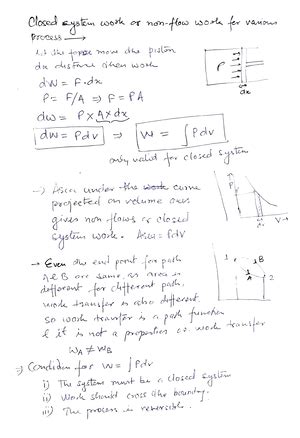 Closed system work or non-flow work for various
Process →
Let the force move the piston
dx distance then work
dW = F.dx
P
dx
P = F/A ⇒ F = PA
dw = P x A x dx
dw = Pdv ⇒ W = ∫Pdv
only valid for closed system
→ Area under the curve
projected on volume axis
gives non flow or closed
system work. Area = Pdv
P
V→
→ Even the end point for path
A & B are same, as area is
different for different path,
work transfer is also different.
So work transfer is a path function
& it is not a properties work transfer
WA ≠ WB
1
B
A
2
⇒ Condition for W = ∫Pdv
i) The system must be a closed system
ii) Work should cross the boundary.
iii) The process is reversible.